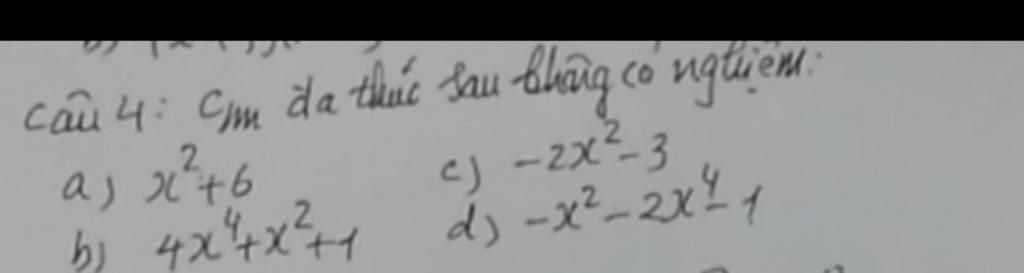 Câu 4: Cm đa thức sau không có nghiệm:
a) x²+6
c) -2x²-3
b) 4x⁴+x²+1
d) -x²-2x⁴-1